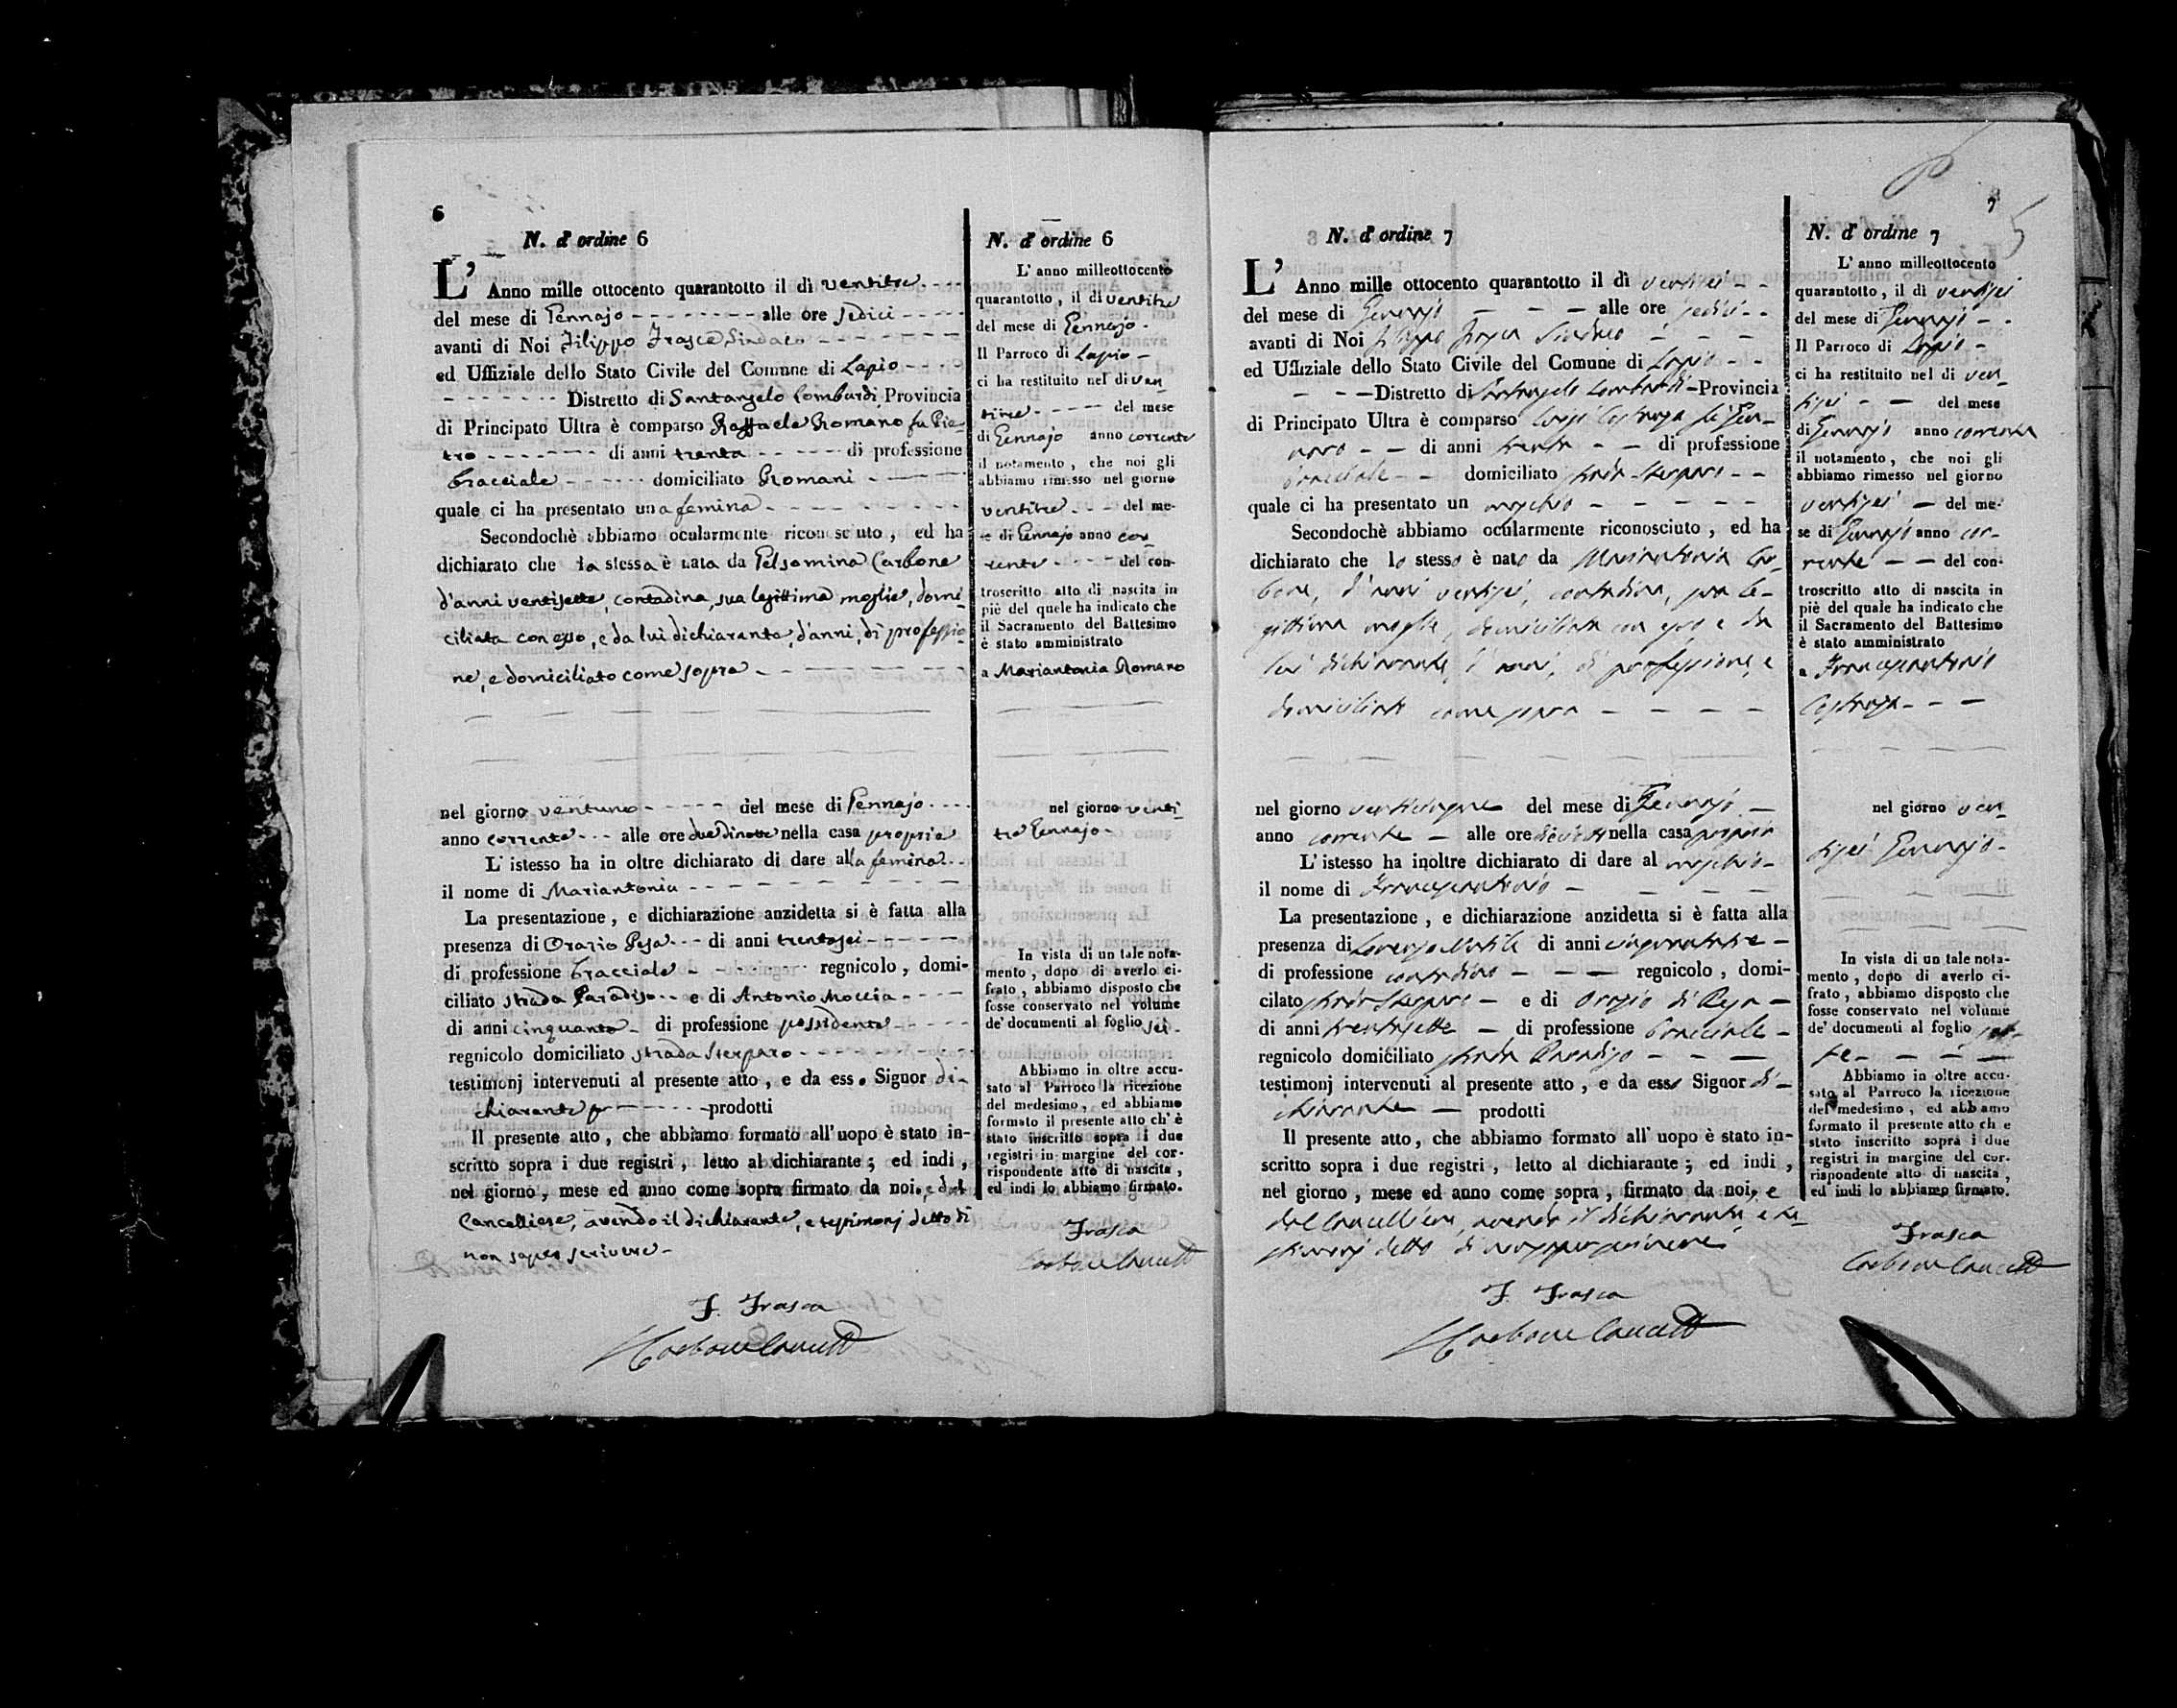 6
N. d' ordine 6
L' Anno mille ottocento quarantotto il dì ventitre
del mese di Gennajo alle ore sedici
avanti di Noi Filippo Frasca Sindaco
ed Uffiziale dello Stato Civile del Comune di Lapio
Distretto di Santangelo Lombardi Provincia
di Principato Ultra è comparso Raffaele Romano fu Pie-
tro di anni trenta di professione
bracciale domiciliato Romani
quale ci ha presentato una femina
Secondochè abbiamo ocularmente riconosciuto, ed ha
dichiarato che la stessa è nata da Gelsomina Carbone
d'anni ventisette, contadina, sua legittima moglie, domi-
ciliata con esso, e da lui dichiarante, d'anni, di professio-
ne, e domiciliato come sopra
nel giorno ventuno del mese di Gennajo
anno corrente alle ore due di notte nella casa propria
L' istesso ha in oltre dichiarato di dare alla femina
il nome di Mariantonia
La presentazione, e dichiarazione anzidetta si è fatta alla
presenza di Orazio Pesa di anni trentasei
di professione bracciale regnicolo, domi-
ciliato strada Paradiso e di Antonio Moccia
di anni cinquanta di professione possidente
regnicolo domiciliato strada Sterparo
testimonj intervenuti al presente atto, e da esso Signor di-
chiarante prodotti
Il presente atto, che abbiamo formato all' uopo è stato in-
scritto sopra i due registri, letto al dichiarante; ed indi,
nel giorno, mese ed anno come sopra firmato da noi, e dal
Cancelliere, avendo il dichiarante, e testimonj detto di
non saper scrivere
F. Frasca
Carbone Cancell
N. d' ordine 6
L' anno milleottocento
quarantotto, il dì ventitre
del mese di Gennajo
Il Parroco di Lapio
ci ha restituito nel dì ven-
titre del mese
di Gennajo anno corrente
il notamento, che noi gli
abbiamo rimesso nel giorno
ventitre del me-
se di Gennajo anno cor-
rente del con-
troscritto atto di nascita in
piè del quele ha indicato che
il Sacramento del Battesimo
è stato amministrato
a Mariantonia Romano
nel giorno venti
tre Gennajo
In vista di un tale nota-
mento, dopo di averlo ci-
frato, abbiamo disposto che
fosse conservato nel volume
de' documenti al foglio sei
Abbiamo in oltre accu-
sato al Parroco la ricezione
del medesimo, ed abbiamo
formato il presente atto ch' è
stato inscritto sopra i due
registri in margine del cor-
rispondente atto di nascita,
ed indi lo abbiamo firmato.
Frasca
Carbone Cancell
7
5
N. d' ordine 7
L' Anno mille ottocento quarantotto il dì ventisei
del mese di Gennajo alle ore sedici
avanti di Noi Filippo Frasca Sindaco
ed Uffiziale dello Stato Civile del Comune di Lapio
Distretto di Santangelo Lombardi Provincia
di Principato Ultra è comparso Luigi di Gen-
naro di anni trenta di professione
bracciale domiciliato strada Sterparo
quale ci ha presentato un maschio
Secondochè abbiamo ocularmente riconosciuto, ed ha
dichiarato che lo stesso è nato da Mariantonia Car-
bone, d'anni ventisei, contadina, sua le-
gittima moglie, domiciliata con esso, e da
lui dichiarante, d'anni, di professione, e
domiciliato come sopra
nel giorno venticinque del mese di Gennajo
anno corrente alle ore nella casa propria
L' istesso ha inoltre dichiarato di dare al maschio
il nome di Francescantonio
La presentazione, e dichiarazione anzidetta si è fatta alla
presenza di Lorenzo di anni cinquantatre
di professione contadino regnicolo, domi-
cilato strada Sterparo e di Orazio di Pesa
di anni trentasette di professione bracciale
regnicolo domiciliato strada Paradiso
testimonj intervenuti al presente atto, e da esso Signor di-
chiarante prodotti
Il presente atto, che abbiamo formato all' uopo è stato in-
scritto sopra i due registri, letto al dichiarante; ed indi,
nel giorno, mese ed anno come sopra, firmato da noi, e
dal Cancelliere, avendo il dichiarante, e te-
stimonj detto di non saper scrivere
F. Frasca
Carbone Cancell
N. d' ordine 7
L' anno milleottocento
quarantotto, il dì ventisei
del mese di Gennajo
Il Parroco di Lapio
ci ha restituito nel dì ven-
tisei del mese
di Gennajo anno corrente
il notamento, che noi gli
abbiamo rimesso nel giorno
ventisei del me-
se di Gennajo anno cor-
rente del con-
troscritto atto di nascita in
piè del quale ha indicato che
il Sacramento del Battesimo
è stato amministrato
a Francescantonio
nel giorno ven-
tisei Gennajo
In vista di un tale nota-
mento, dopo di averlo ci-
frato, abbiamo disposto che
fosse conservato nel volume
de' documenti al foglio set-
te
Abbiamo in oltre accu-
sato al Parroco la ricezione
del medesimo, ed abbiamo
formato il presente atto ch e
stato inscritto sopra i due
registri in margine del cor-
rispondente atto di nascita,
ed indi lo abbiamo firmato.
Frasca
Carbone Cancell